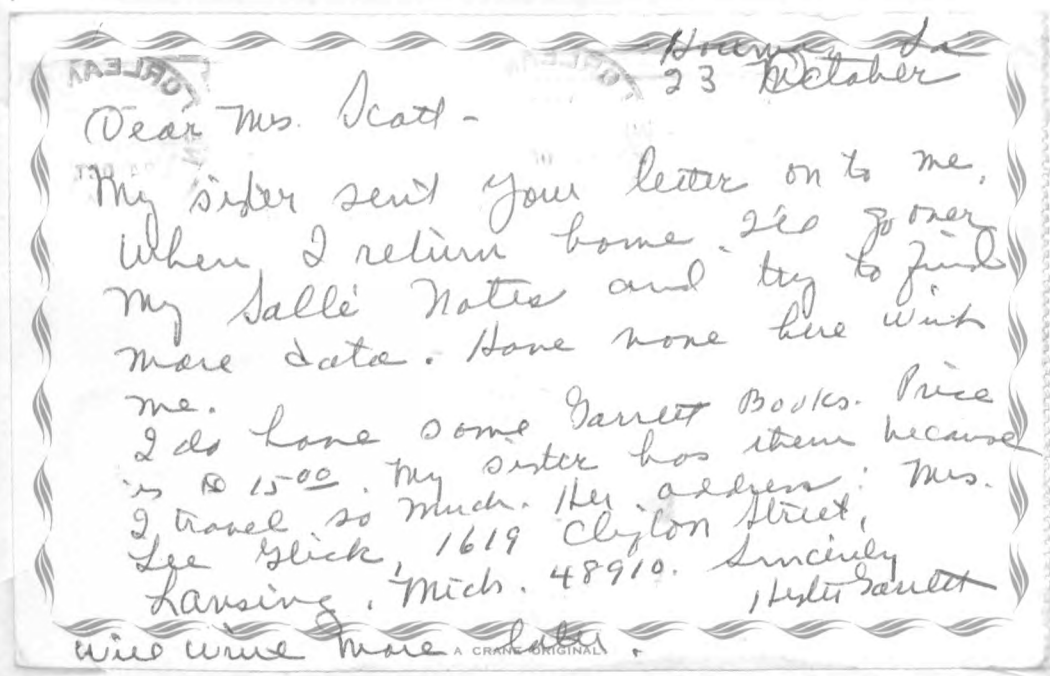 Houma, La
23 October
Dear Mrs. Scott -
My sister sent your letter on to me.
When I return home I'll go over
my Sallé notes and try to find
more data. Have none here with
me.
I do have some Garrett Books. Price
is $15.00. My sister has them because
I travel so much. Her address: Mrs.
Lee Glick, 1619 Clifton Street,
Lansing, Mich. 48910. Sincerely
Hester Garrett
Will write more later.
A CRANE ORIGINAL